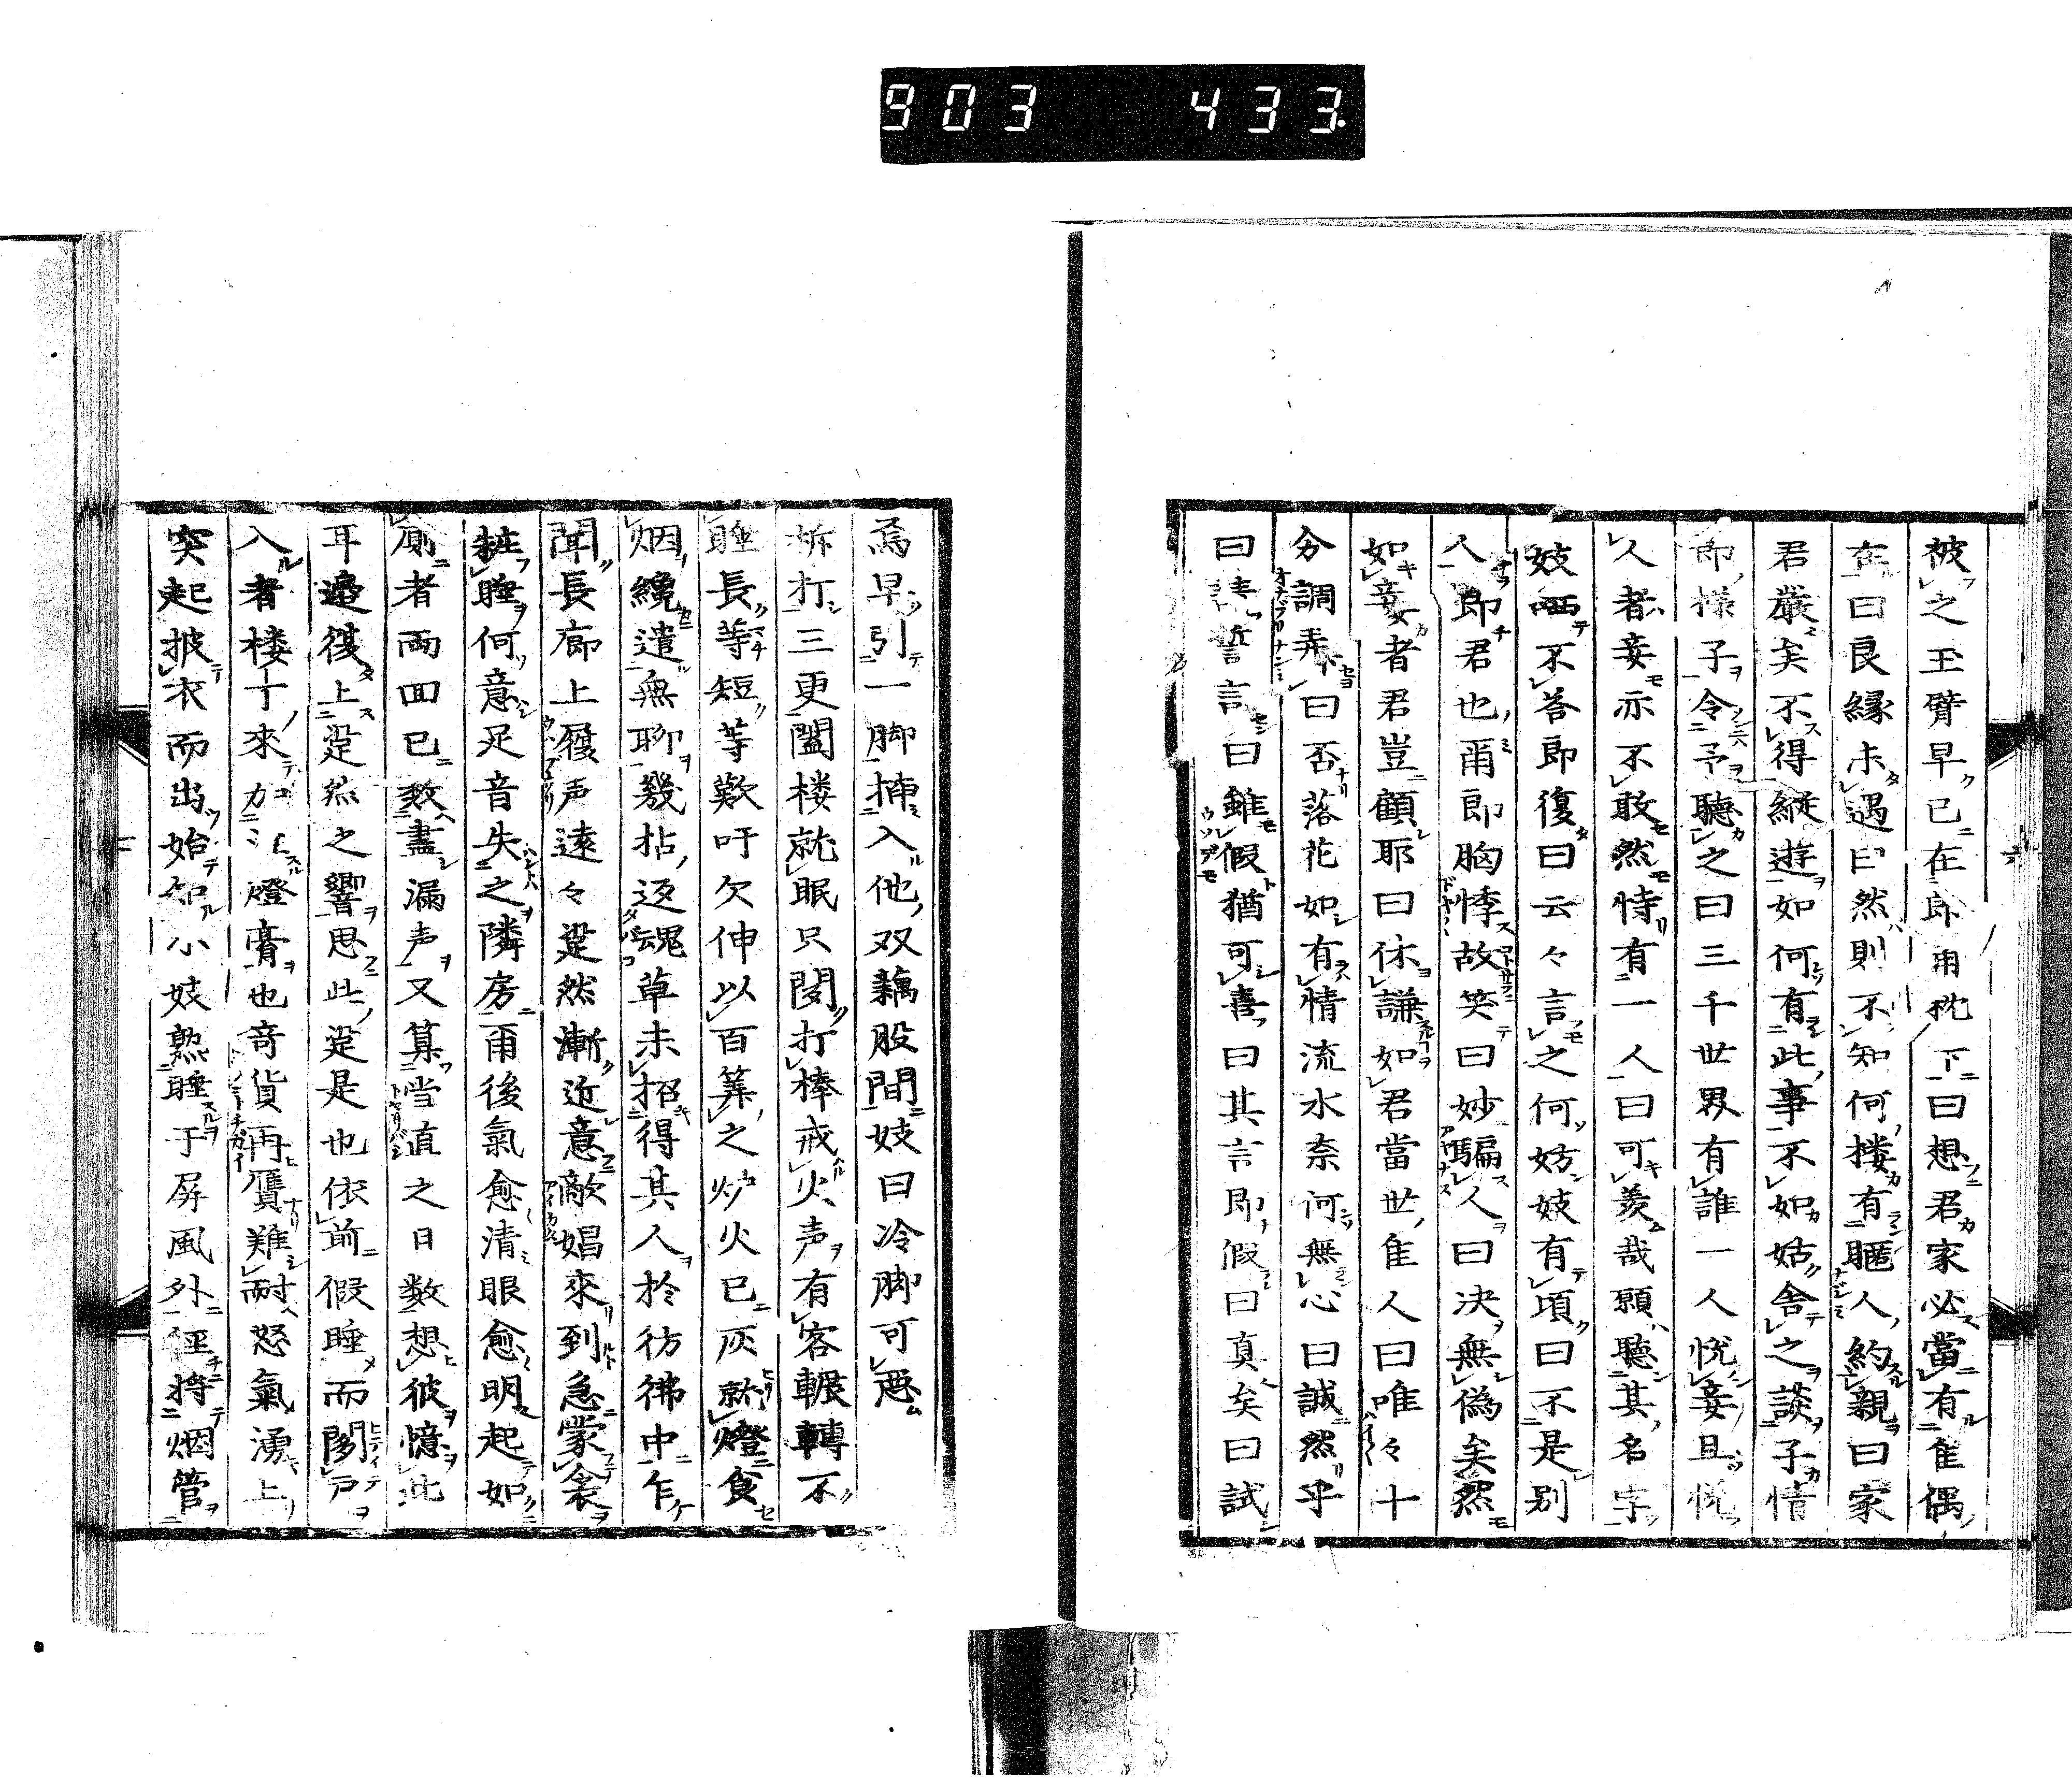 903 433.
被之玉臂早已在郎用枕下曰想君家必當有隹偶
在曰良縁未遇曰然則不知何楼有暱人約親曰家
君嚴矣不得縱遊如何有此事不如姑舎之談子情
郎様子令予聽之曰三千世界有誰一人悦妾且悦
人者妾亦不敢然恃有一人曰可羨哉願聽其名字
妓哂不答即復曰云々言之何妨妓有頃曰不是別
人即君也爾即胸悸故笑曰妙騙人曰决無偽矣然
如妾者君豈顧耶曰休謙如君當世隹人曰唯々十
分調弄曰否落花如有情流水奈何無心曰誠然乎
曰請誓言曰雖假猶可喜曰其言即假曰真矣曰試
為早引一脚揷入他双藕股間妓曰冷脚可惡
柝打三更闔楼就眠只聞打棒戒火声有客輾轉不
睡長等短等歎吁欠伸以百筭之炉火已灰就燈食
烟纔遣無聊幾拈返魂草未招得其人於彷彿中乍
聞長廊上履声遠々跫然漸近意敵娼來到急蒙衾
粧睡何意足音失之隣房爾後氣愈清眼愈明起如
厠者兩回已数盡漏声又算当直之日数想彼憶此
耳邉復上跫然之響思此跫是也依前假睡而閉戸
入者楼丁來加注燈膏也奇貨再贋難耐怒氣湧上
突起披衣而出始知小妓熟睡于屏風外徑将烟管